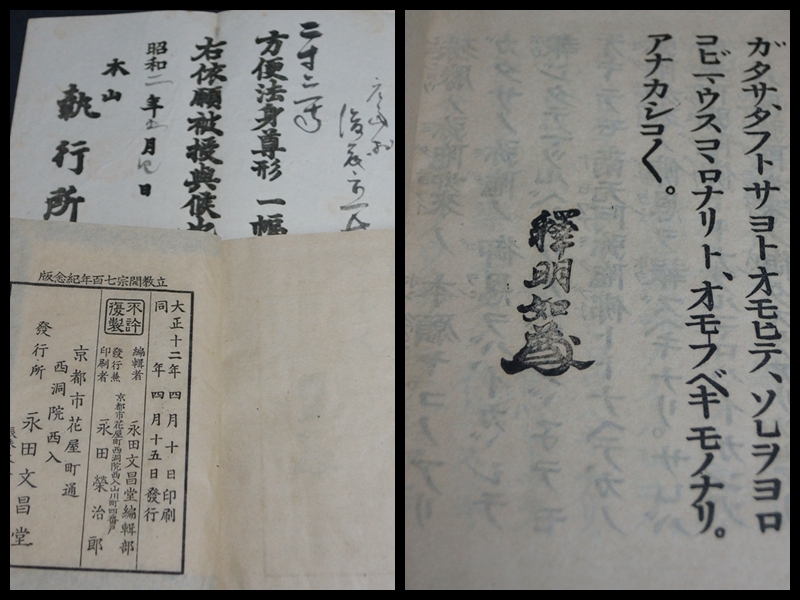 方便法身尊形 一幅
右依願被授與候也
昭和二年 月 日
本山
執行所
立教開宗七百年紀念版
大正十二年四月十日印刷
同 年四月十五日發行
不許復製
編輯者 永田文昌堂編輯部
京都市花屋町西洞院西入山川町四番戸
發行兼印刷者 永田榮治郎
京都市花屋町通
西洞院西入
發行所 永田文昌堂
ガタサ、タフトサヨトオモヒテ、ソレヲヨロ
コビマウスコヽロナリト、オモフベキモノナリ。
アナカシコ〱。
釋明如